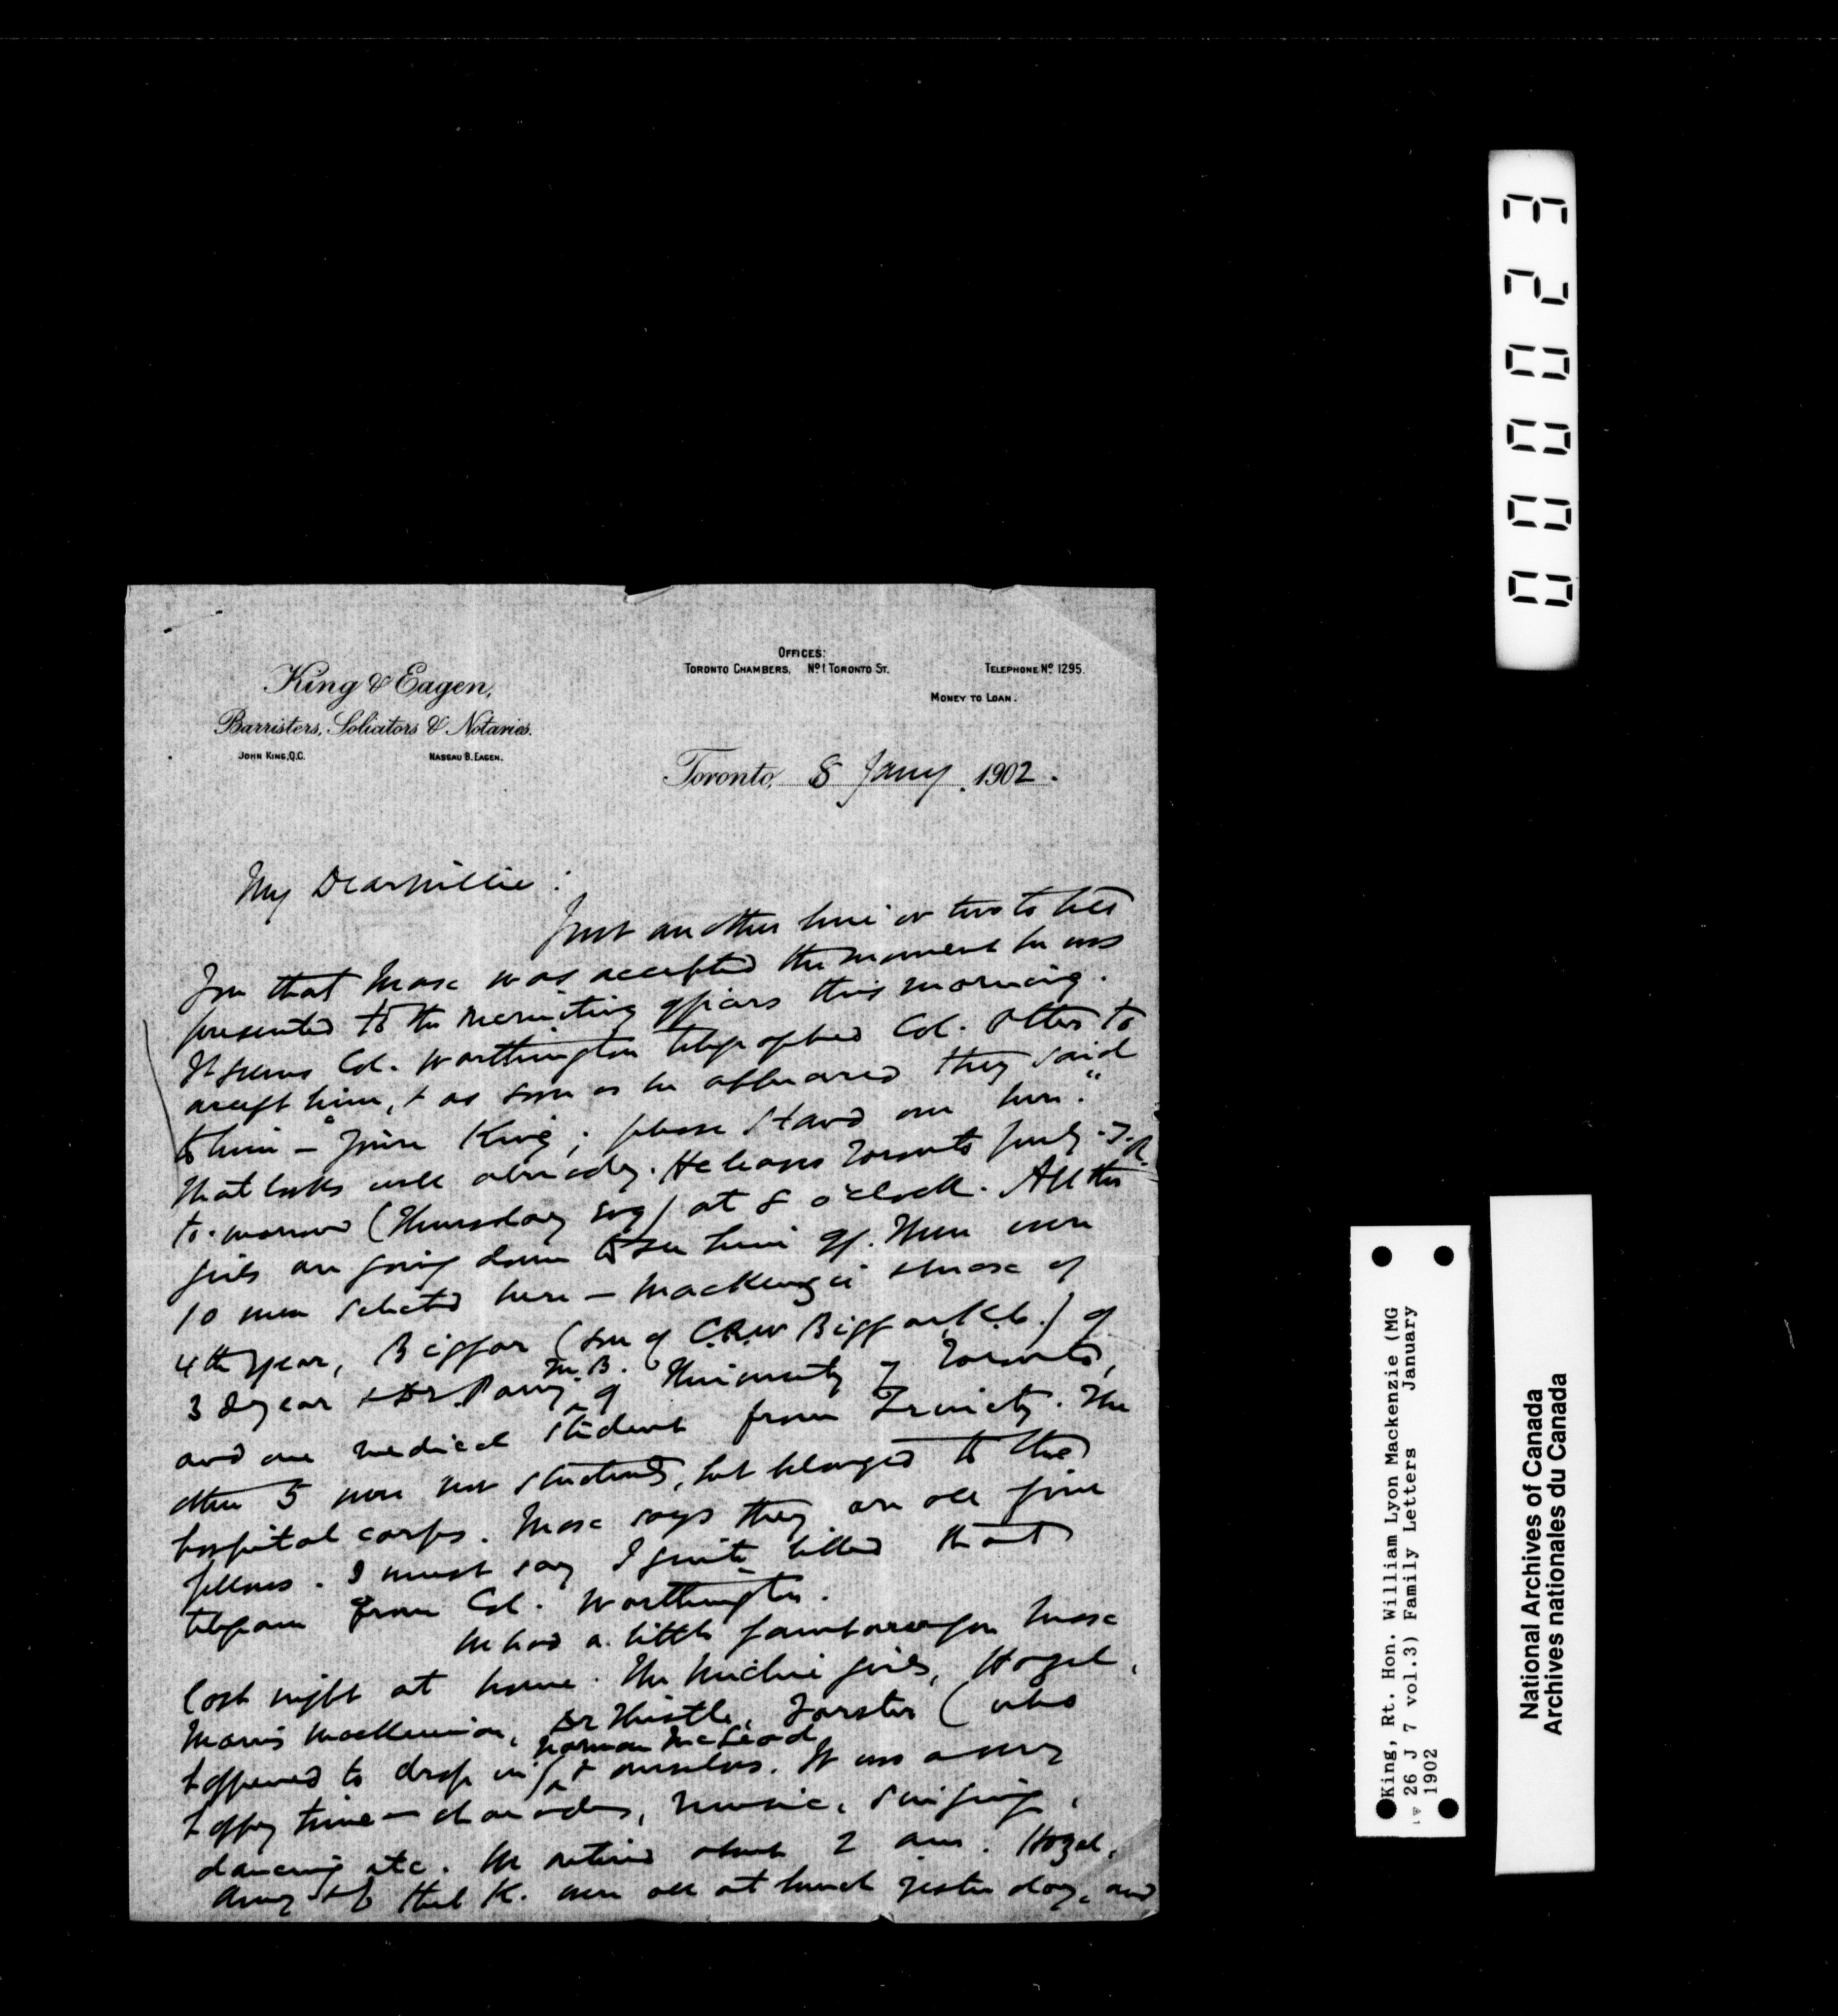 King & Eagen,
Barristers, Solicitors & Notaries.
John King, Q.C. Nassau B. Eagen.
Offices:
Toronto Chambers, No 1 Toronto St.
Telephone No 1295.
Money to Loan.
Toronto, 8 Jany. 1902.
My Dear Willie:
Just another line or two to tell
you that Max was accepted the moment he was
presented to the recruiting officers this morning.
It seems Col. Worthington telegraphed Col. Otter to
accept him, & as soon as he appeared they said
to him – "You're King; please stand over here."
That looks well already. He leaves Toronto
to-morrow (Thursday evg) at 8 o'clock. All the
girls are going down to see him off. There were
10 men selected here – Mackenzie & Max of
4th year, Biggar (son of C.R.W. Biggar K.C.) of
3d year & Dr. Parry M.B. of University of Toronto,
and one medical student from Trinity. The
other 5 were not students, but belonged to the
hospital corps. Max says they are all fine
fellows. I must say I quite liked that
telegram from Col. Worthington.
We had a little farewell for Max
last night at home. The Michie girls, Hazel,
Dr Thistle, Forster (who
happened to drop in), Norman McLeod & ourselves. It was a very
happy time – charades, music, singing,
dancing etc. We retired about 2 am. Hazel,
Amy K. were all at lunch yesterday, and
00023
King, Rt. Hon. William Lyon Mackenzie (MG
26 J 7 vol.3) Family Letters January
1902
National Archives of Canada
Archives nationales du Canada